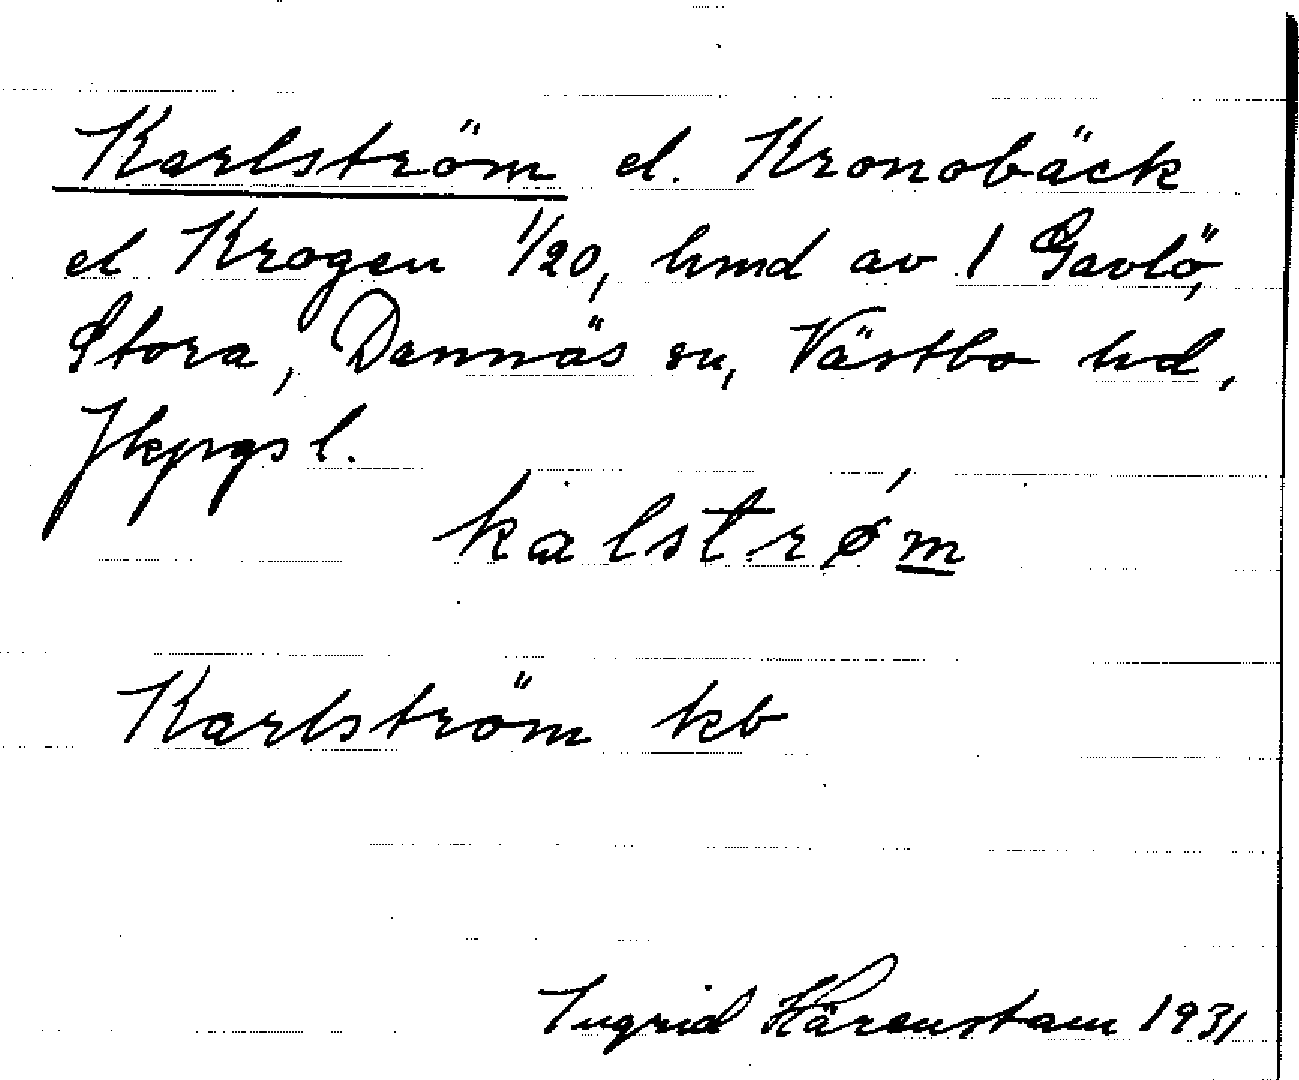 Karlström el. Kronobäck
el Krogen 1/20, hmd av 1 Gavlö,
Stora, Dannäs sn, Västbo hd,
Jkpgs l.
kalstrø´m
Karlström kb
Ingrid Härenstam 1931